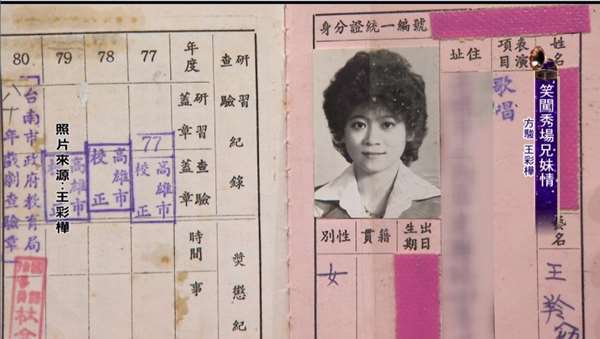 身分證統一編號
姓名
表演項目
歌唱
住址
藝名
王羚
出生日期
籍貫
性別
女
笑闖秀場兄妹情
方駿 王彩樺
照片來源:王彩樺
研習查驗紀錄
年度
77
78
79
80
研習蓋章
查驗蓋章
77
高雄市
校正
高雄市
校正
高雄市
校正
台南市政府教育局
八十年戲劇查驗章
時間
事
獎懲紀